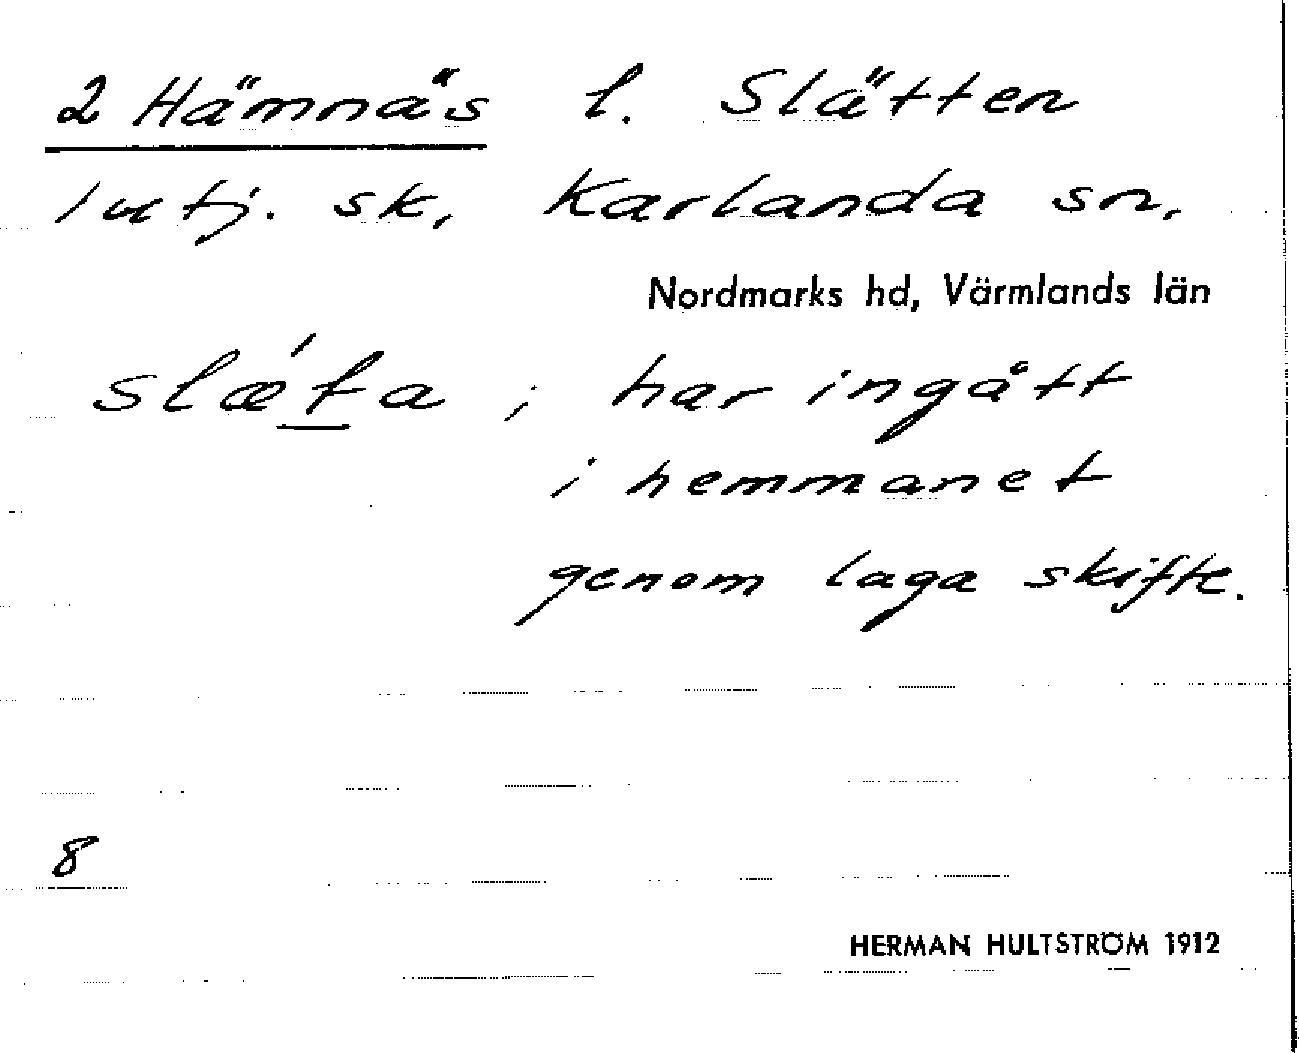 2 Hämnäs l. Slätten
1 utj. sk, Karlanda sn,
Nordmarks hd, Värmlands län
slǽta ; har ingått
i hemmanet
genom laga skifte.
8
HERMAN HULTSTRÖM 1912